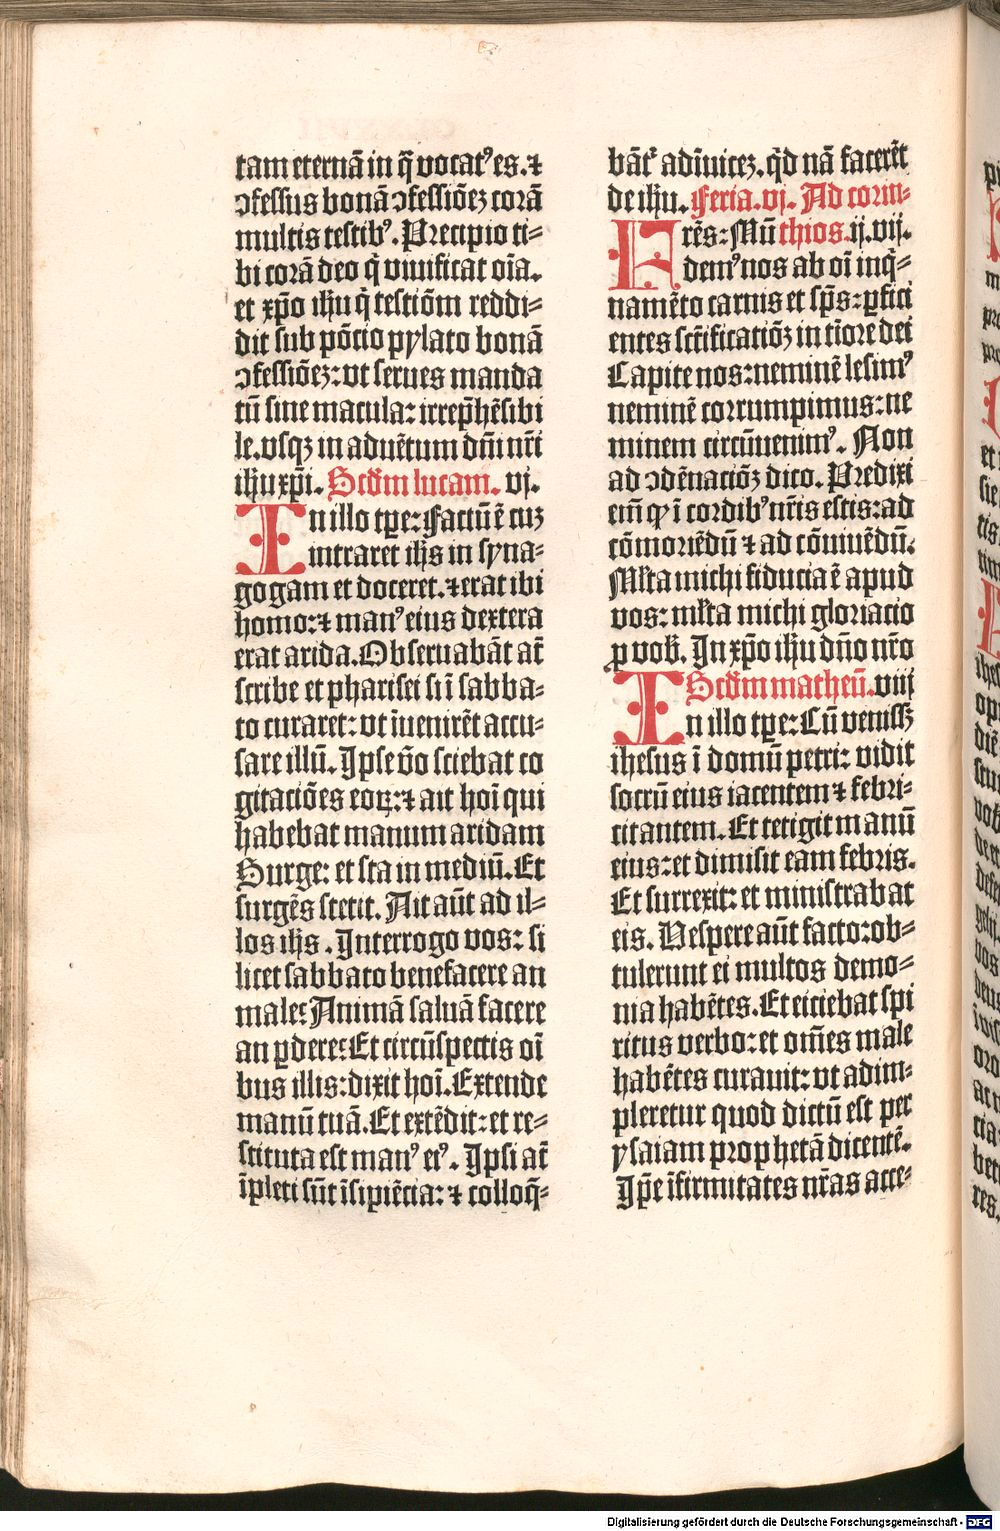 tam eternā in q̄ vocatꝰ es. ⁊
ↄfessus bonā ↄfessiōeꝫ corā
multis testibꝰ. Precipio ti⸗
bi corā deo q̄ viuificat oīa.
et xp̄o ihū q̄ testiōm reddi⸗
dit sub pōcio pylato bonā
ↄfessiōeꝫ: vt serues manda
tū sine macula: irrep̄hēsibi
le. vsqꝫ in aduētum dn̄i nr̄i
ihū xp̄i. Scd̄m lucam. vj.
In illo tꝑe: Factū ē cuꝫ
intraret ihs̄ in syna⸗
gogam et doceret. ⁊ erat ibi
homo: ⁊ manꝰ eius dextera
erat arida. Obseruabāt at̄
scribe et pharisei si ī sabba⸗
to curaret: vt īuenirēt accu⸗
sare illū. Ipse v̄o sciebat co
gitaciōes eoꝝ: ⁊ ait hoī qui
habebat manum aridam
Surge: et sta in mediū. Et
surgēs stetit. Ait aūt ad il⸗
los ihs̄. Interrogo vos: si
licet sabbato benefacere an
male: Animā saluā facere
an ꝑdere: Et circūspectis oī
bus illis: dixit hoī. Extende
manū tuā. Et extēdit: et re⸗
stituta est manꝰ eiꝰ. Ipsi at̄
īpleti sūt īsipiēcia: ⁊ colloq̄⸗
bāt᷑ adīuicez. qd̄ nā facerēt
de ihū. Feria. vj. Ad corin⸗
thios. ij. vij.
Frēs: Mū
demꝰ nos ab oī inq̄⸗
namēto carnis et sp̄s: ꝑfici
entes sct̄ificatiōꝫ in tīore dei
Capite nos: neminē lesimꝰ
neminē corrumpimus: ne
minem circūuenimꝰ. Non
ad ↄdēnaciōꝫ dico. Predixi
em̄ ꝙ ī cordibꝰ nr̄is estis: ad
cōmoriēdū ⁊ ad cōuiuēdū.
Ml̄ta michi fiducia ē apud
vos: ml̄ta michi gloriacio
ꝓ vob̄. In xp̄o ihū dn̄o nr̄o
Scd̄m matheū. viij
In illo tꝑe: Cū venissꝫ
ihesus ī domū petri: vidit
socrū eius iacentem ⁊ febri⸗
citantem. Et tetigit manū
eius: et dimisit eam febris.
Et surrexit: et ministrabat
eis. Vespere aūt facto: ob⸗
tulerunt ei multos demo⸗
nia habētes. Et eiciebat spi
ritus verbo: et om̄es male
habētes curauit: vt adim⸗
pleretur quod dictū est per
ysaiam prophetā dicentē.
Ip̄e īfirmitates nr̄as acce⸗